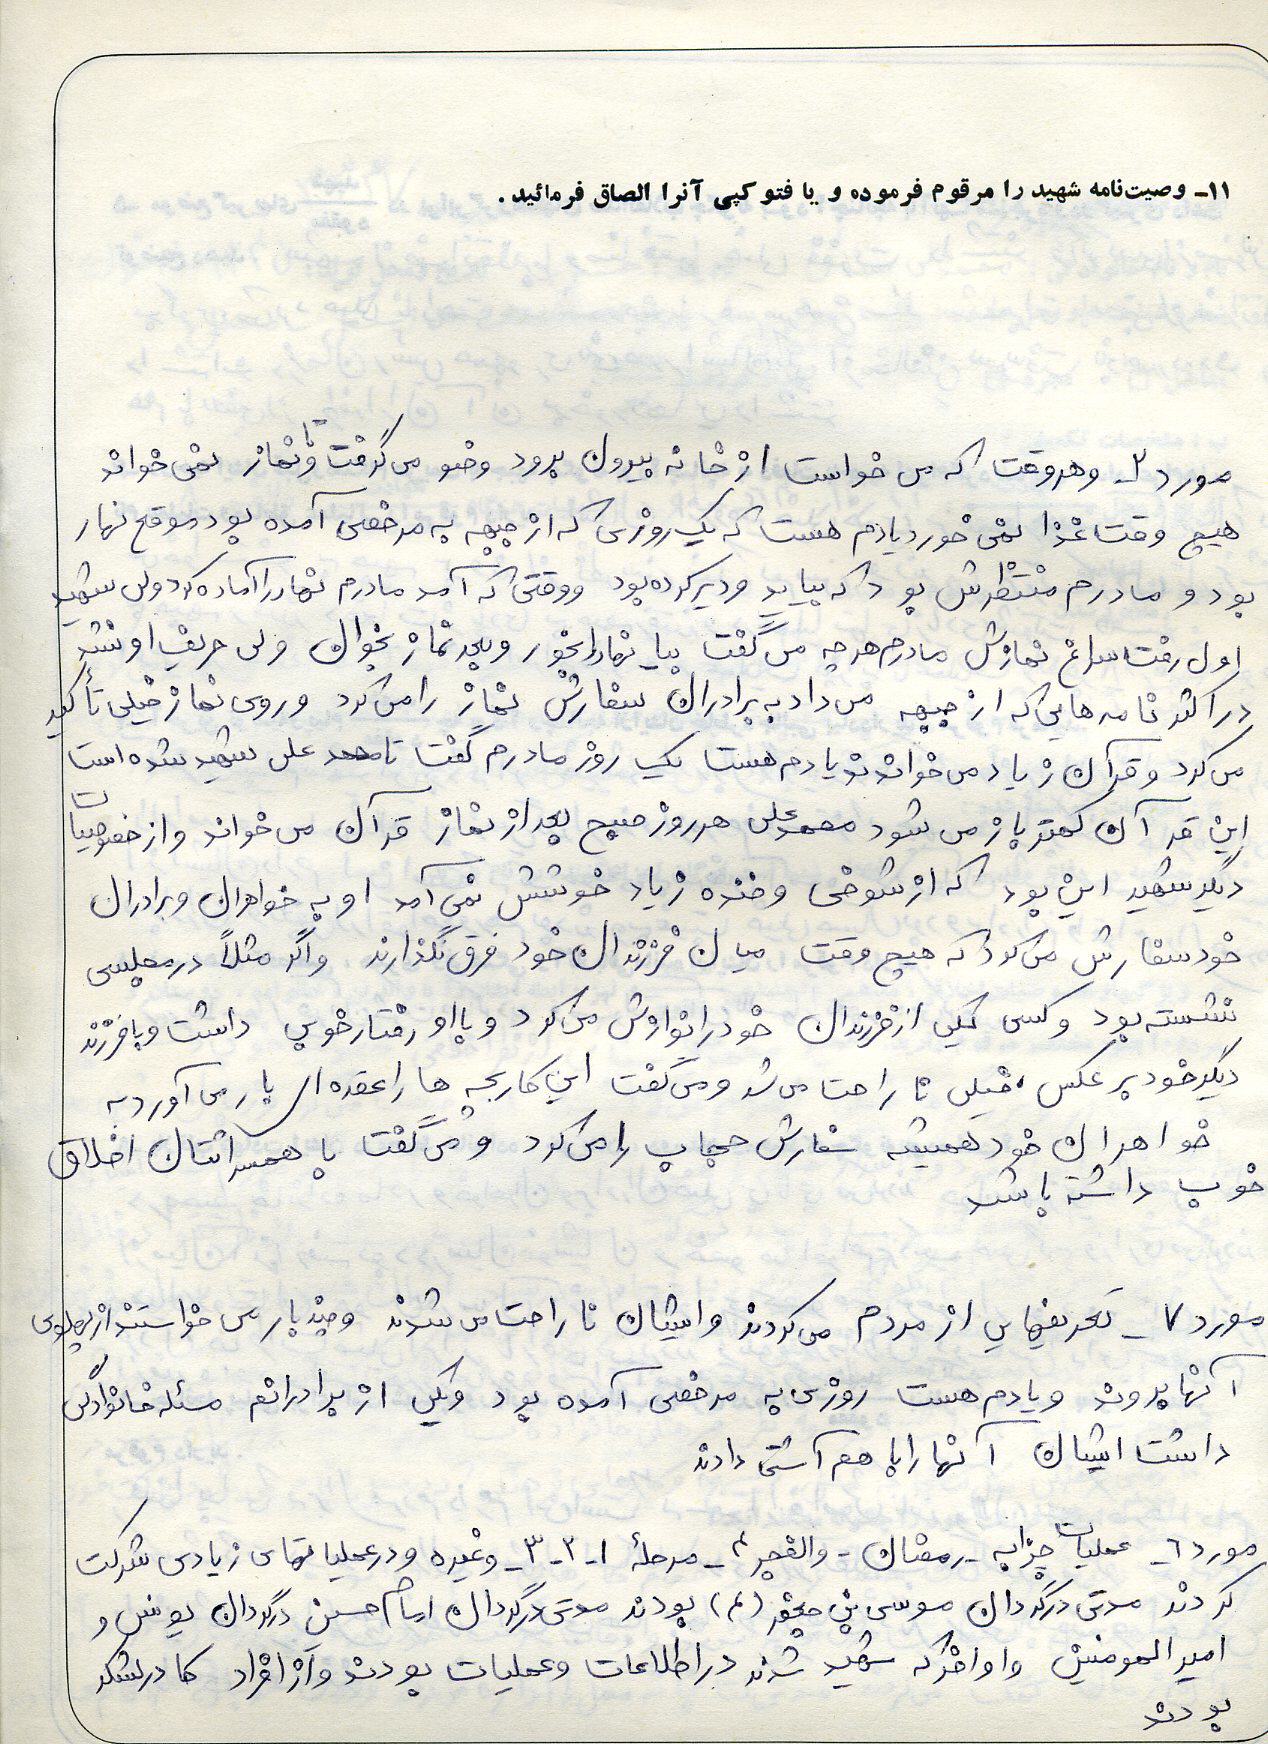 ۱۱ـ وصیت‌نامه شهید را مرقوم فرموده و یا فتوکپی آنرا الصاق فرمائید.
مورد ۲ـ وهروقت که می خواست از خانه بیرون برود وضو می گرفت و تا نماز نمی خواند
هیچ وقت غذا نمی خورد یادم هست که یک روزی که از جبهه به مرخصی آمده بود موقع نهار
بود و مادرم منتظرش بود که بیاید ودیر کرده بود ووقتی که آمد مادرم نهار را آماده کرد ولی شهید
اول رفت سراغ نمازش مادرم هر چه می گفت بیا نهار رابخور وبعد نماز بخوان ولی حریف او نشد
در اکثر نامه هایی که از جبهه می داد به برادران سفارش نماز را می کرد و روی نماز خیلی تأکید
می کرد و قرآن زیاد می خواندند یادم هست یک روز مادرم گفت تا محمد علی شهید شده است
این قرآن کمتر باز می شود محمد علی هر روز صبح بعد از نماز قرآن می خواند و از خصوصیات
دیگر شهید این بود که از شوخی و خنده زیاد خوشش نمی آمد او به خواهران و برادران
خود سفارش می کرد که هیچ وقت میان فرزندان خود فرق نگذارند واگر مثلاً در مجلسی
نشسته بود و کسی یکی از فرزندان خود را نوازش می کرد و با او رفتار خوبی داشت و با فرزند
دیگر خود بر عکس، خیلی نا راحت می شد و می گفت این کار بچه ها را عقده ای بار می آورد به
خواهران خود همیشه سفارش حجاب را می کرد و می گفت با همسرانتان اخلاق
خوب داشته باشد
مورد ۷ ـ تعریفهایی از مردم می کردند و ایشان نا راحت می شدند و چند بار می خواستند از پهلوی
آنها بروند و یادم هست روزی به مرخصی آمده بود ویکی از برادرانم مسئله خانوادگی
داشت ایشان آنها را با هم آشتی دادند
مورد ٦ ـ عملیات چزابه ـ رمضان ـ والفجر ۴ ـ مرحلهٔ ۱ ـ ۲ ـ ۳ ـ وغیره و در عملیاتهای زیادی شرکت
کردند مدتی در گردان موسی بن جعفر (ع) بودند مدتی در گردان امام حسین در گردان یونس و
امیر المومنین و اواخر که شهید شدند در اطلاعات و عملیات بودند و از افراد کادر لشکر
بودند